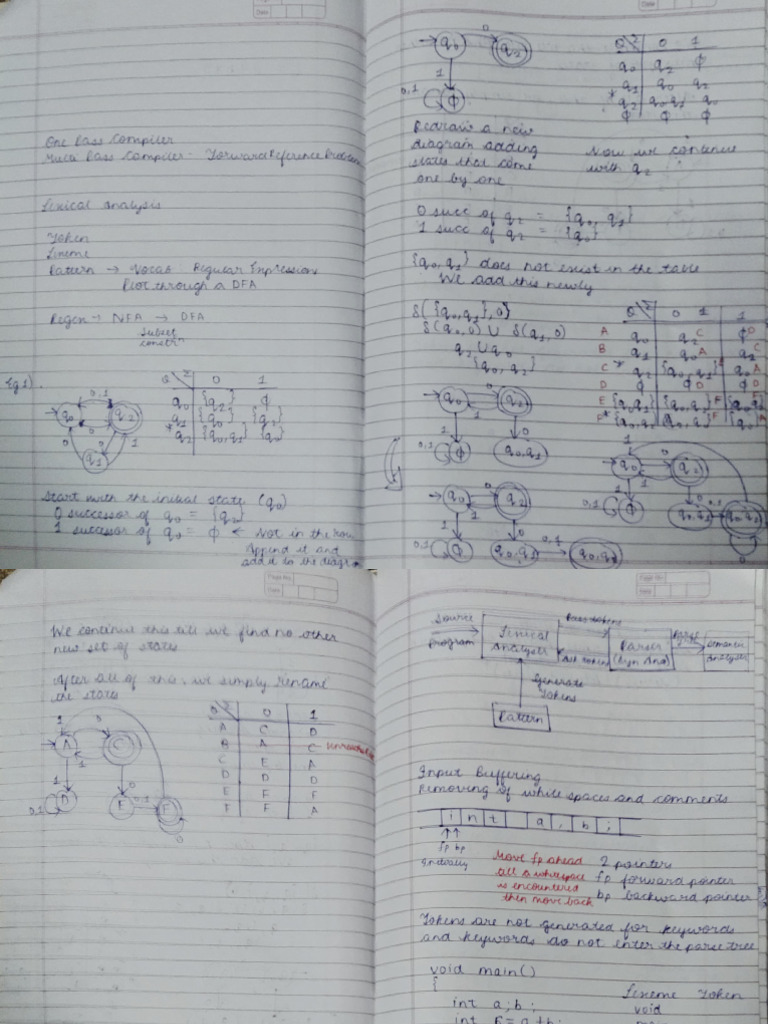 One Pass Compiler
Multi Pass Compiler - Forward Reference Problem
Lexical Analysis
Token
Lexeme
Pattern → Vocab Regular Expressions
Plot through a DFA
Regex → NFA → DFA
Subset
constrⁿ
Eg 1)
0,1
q0
q2
q1
Q Σ 0 1
q0 {q2} ϕ
q1 {q0} {q2}
* q2 {q0,q1} {q0}
Start with the initial state (q0)
0 successor of q0 = {q2}
1 successor of q0 = ϕ ← Not in the row
Append it and
add it to the diagram
q0 0 q2
1
0,1 ϕ
Q Σ 0 1
q0 q2 ϕ
q1 q0 q2
* q2 q0q1 q0
ϕ ϕ ϕ
Redraw a new
diagram adding
states that come
one by one
Now we continue
with q2
0 succ of q2 = {q0, q1}
1 succ of q2 = {q0}
{q0, q1} does not exist in the table
We add this newly
δ({q0,q1},0)
δ(q0,0) ∪ δ(q1,0)
q2 ∪ q0
{q0, q2}
Q Σ 0 1
A q0 q2 C ϕ D
B q1 q0 A q2 C
C * q2 {q0,q1} E q0 A
D ϕ ϕ D ϕ D
E {q0,q1} {q0,q2} F {q0,q2} F
F * {q0,q2}
We continue this till we find no other
new set of states
After all of this, we simply rename
the states
Q Σ 0 1
A C D
B A C Unreachable
C E A
D D D
E F F
F F A
Source
Program
Lexical
Analysis
Pass tokens
Parser
(Syn Ana)
Semantic
Analysis
Generate
Tokens
Pattern
Input Buffering
Removing of white spaces and comments
i n t a , b ;
fp bp
Initially
Move fp ahead 2 pointers
till a whitespace fp forward pointer
is encountered bp backward pointer
then move back
Tokens are not generated for keywords
and keywords do not enter the parse tree
void main()
{
Lexeme Token
int a,b;
void